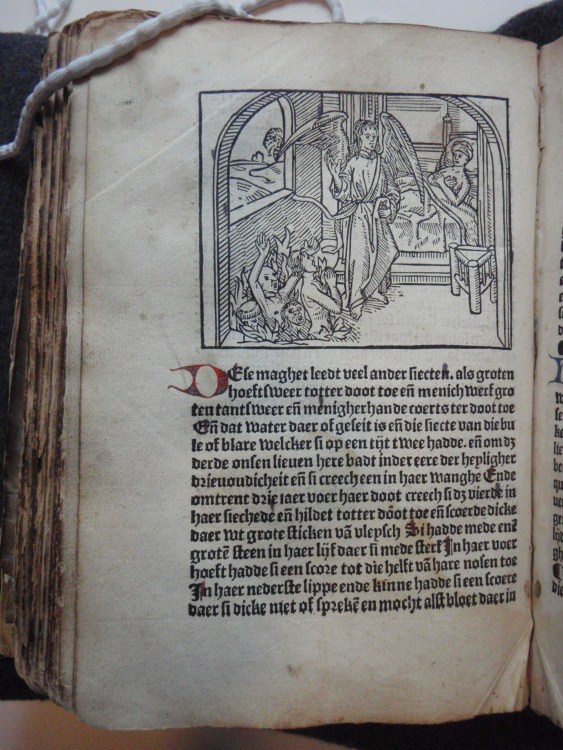 DEse maghet leedt veel ander siecten. als groten
hoeftsweer totter doot toe eñ menich werf gro
ten tantsweer eñ menigherhande coerts ter doot toe
Eñ dat water daer of geseit is eñ die siecte van die bu
le of blare welcker si op een tijt twee hadde. eñ om dz
derde onsen lieuen here badt inder eere der heyligher
drieuoudicheit eñ si creech een in haer wanghe Ende
omtrent drie iaer voer haer doot creech si dz vierde in
haer siechede eñ hildet totter doot toe eñ scoerde dicke
daer wt grote sticken vã vleysch Si hadde mede enẽ
grotẽ steen in haer lijf daer si mede sterf In haer voer
hoeft hadde si een score tot die helft vã hare nosen toe
In haer nederste lippe ende kinne hadde si een scoere
daer si dicke niet of sprekẽ en mocht alst bloet daer in